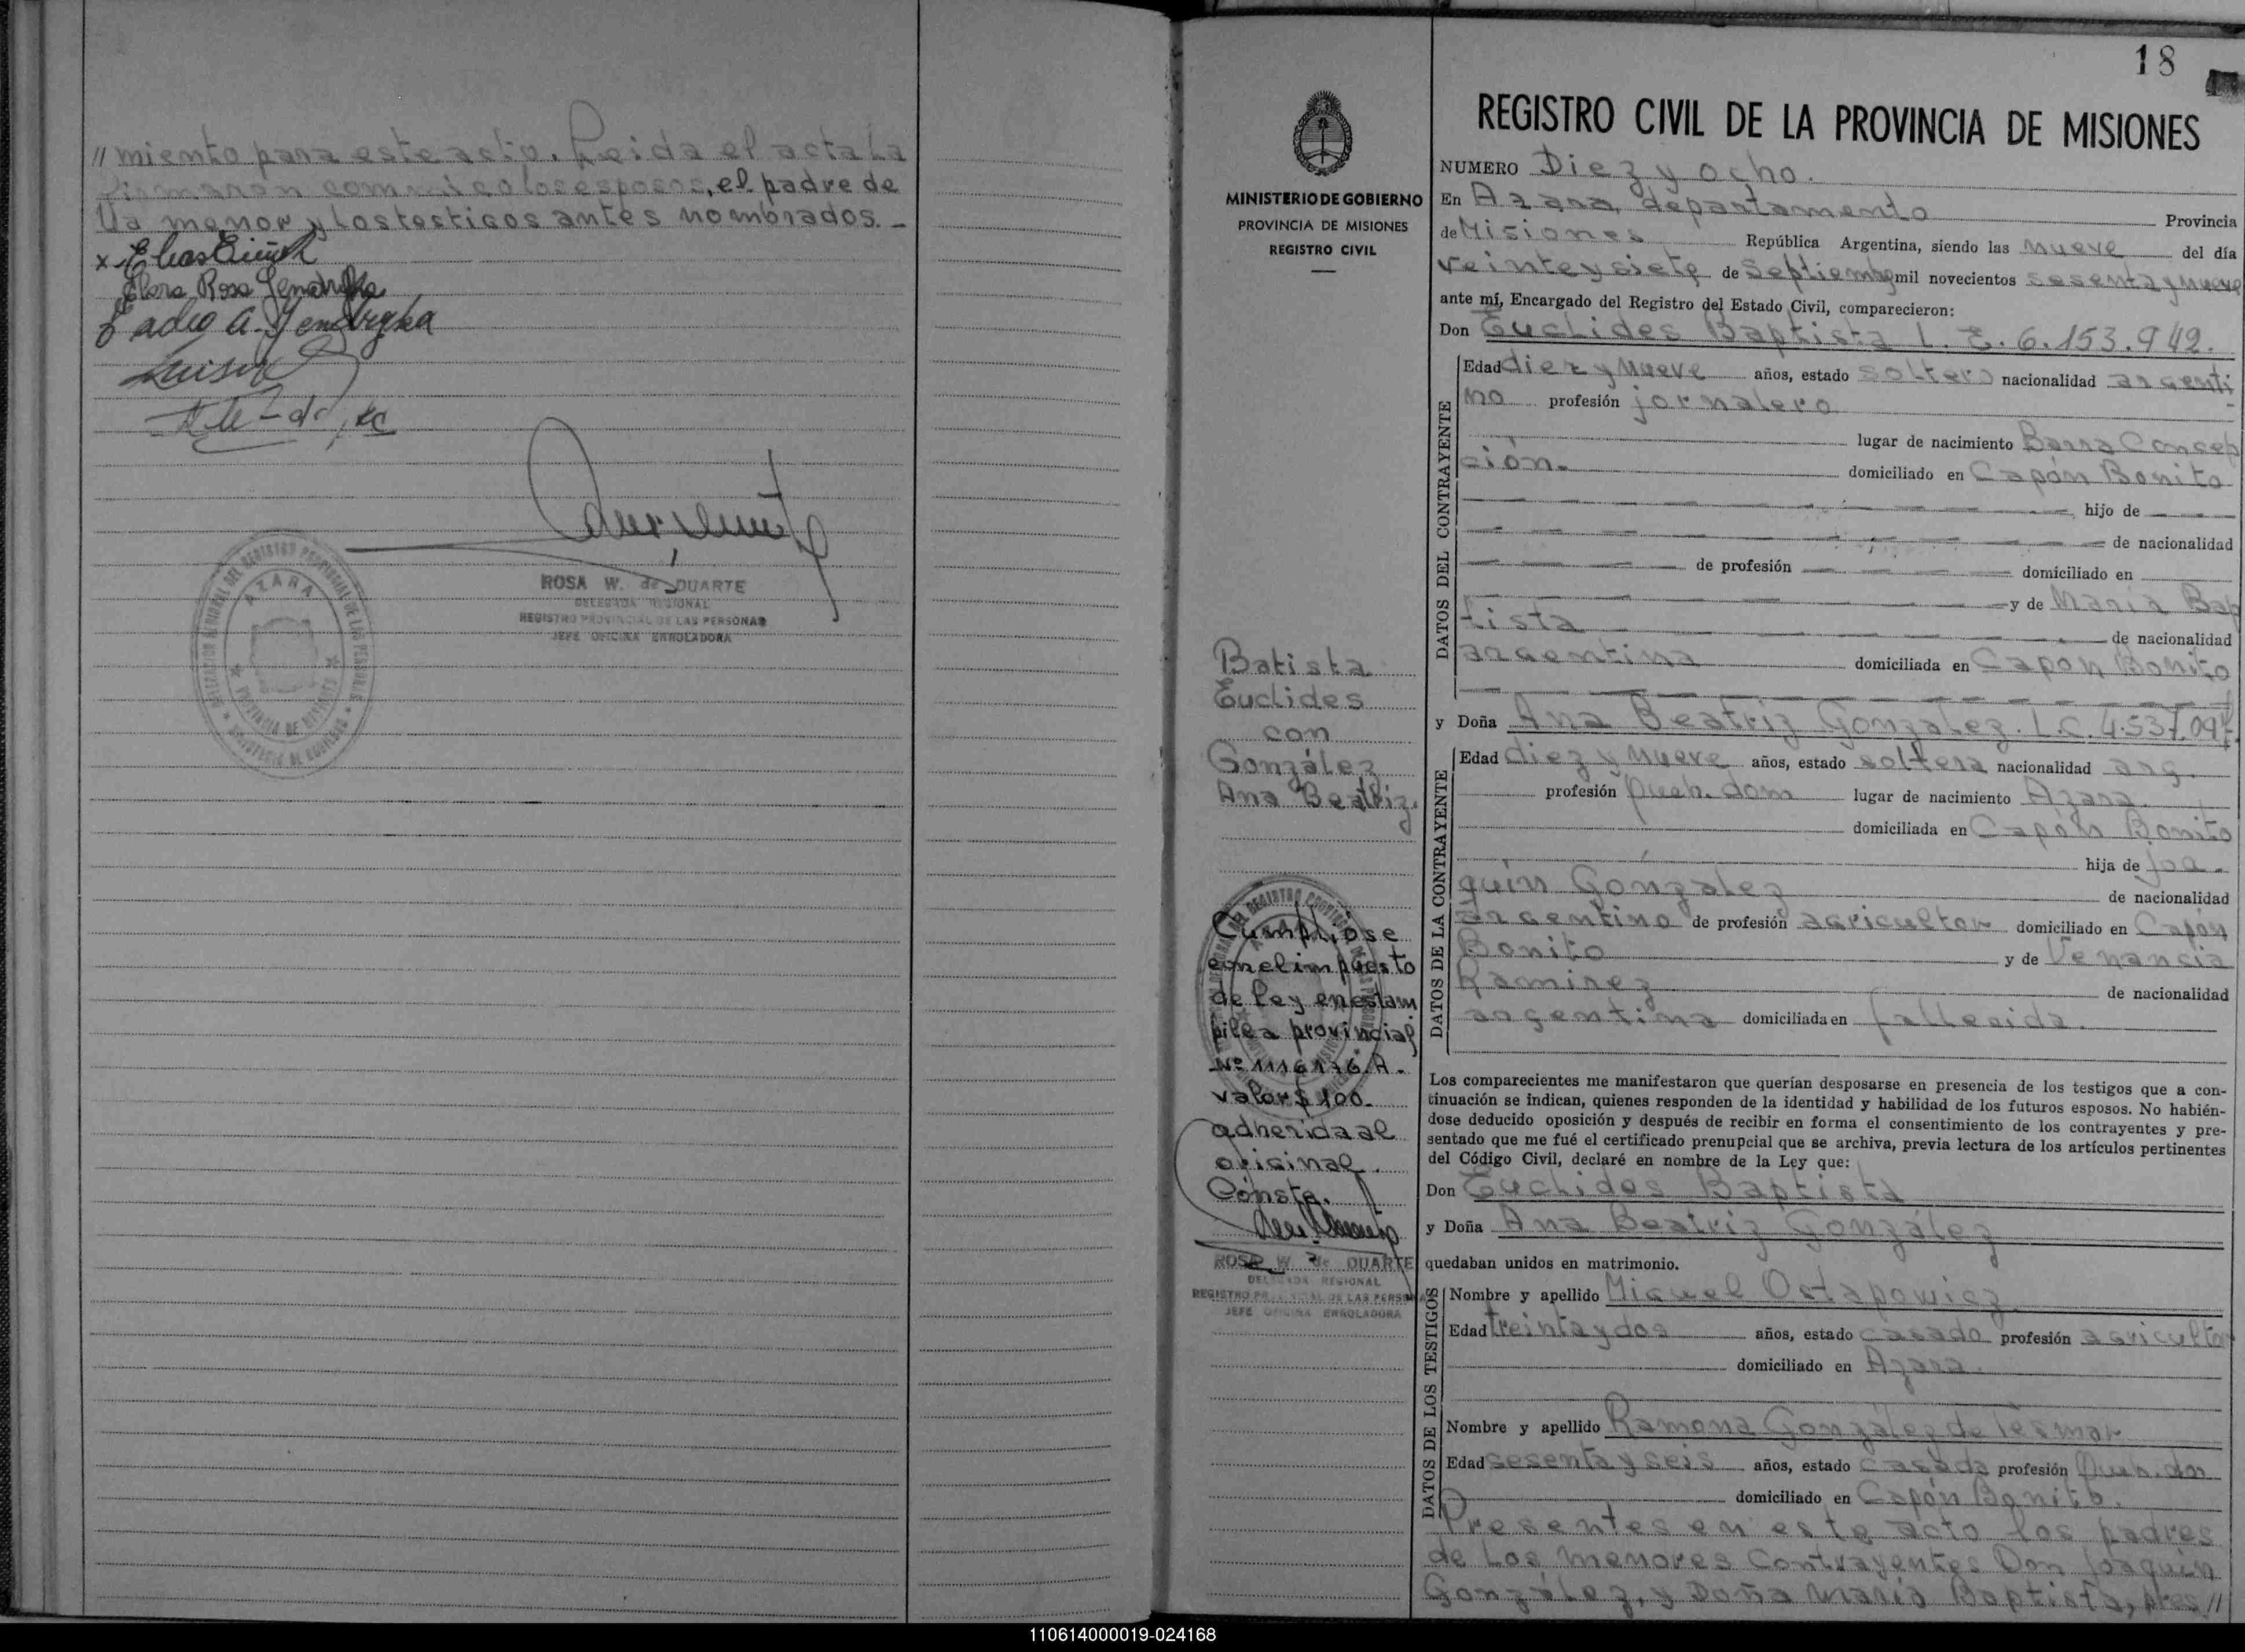 // miento para este acto. Leida el acta la
firmaron conmigo los esposos, el padre de
la menor y los testigos antes nombrados. -
x
Clara Rosa
Tadeo A. Jendryka
Luis
ROSA W. de DUARTE
DELEGADA REGIONAL
REGISTRO PROVINCIAL DE LAS PERSONAS
JEFE OFICINA ENROLADORA
AZARA
PROVINCIA DE MISIONES
MINISTERIO DE GOBIERNO
18
REGISTRO CIVIL DE LA PROVINCIA DE MISIONES
MINISTERIO DE GOBIERNO
PROVINCIA DE MISIONES
REGISTRO CIVIL
Batista
Euclides
con
González
Ana Beatriz.
Cumplióse
con el impuesto
de ley en estam
pilla provincial
Nº 1116176 A.
valor $ 100.
adherida al
original.
Consta.
ROSA W. de DUARTE
DELEGADA REGIONAL
REGISTRO PROVINCIAL DE LAS PERSONA
JEFE OFICINA ENROLADORA
NUMERO Diez y ocho.
En Azara, departamento Provincia
de Misiones República Argentina, siendo las nueve del día
veinte y siete de Septiembre mil novecientos sesenta y nueve
ante mí, Encargado del Registro del Estado Civil, comparecieron:
Don Euclides Baptista L. E. 6.153.942.
DATOS DEL CONTRAYENTE
Edad diez y nueve años, estado soltero nacionalidad argenti
no profesión jornalero
lugar de nacimiento Barra Concep
ción. domiciliado en Capón Bonito
hijo de
de nacionalidad
de profesión domiciliado en
y de María Bap
tista de nacionalidad
argentina domiciliada en Capón Bonito
y Doña Ana Beatriz Gonzalez. L.C. 4.537.094.
DATOS DE LA CONTRAYENTE
Edad diez y nueve años, estado soltera nacionalidad arg.
profesión Queh. dom lugar de nacimiento Azara.
domiciliada en Capón Bonito
hija de Joa-
quin Gonzalez de nacionalidad
argentino de profesión agricultor domiciliado en Capón
Bonito y de Venancia
Ramirez de nacionalidad
argentina domiciliada en fallecida.
Los comparecientes me manifestaron que querían desposarse en presencia de los testigos que a con-
tinuación se indican, quienes responden de la identidad y habilidad de los futuros esposos. No habién-
dose deducido oposición y después de recibir en forma el consentimiento de los contrayentes y pre-
sentado que me fué el certificado prenupcial que se archiva, previa lectura de los artículos pertinentes
del Código Civil, declaré en nombre de la Ley que:
Don Euclides Baptista
y Doña Ana Beatriz González
quedaban unidos en matrimonio.
DATOS DE LOS TESTIGOS
Nombre y apellido Miguel Ostapowicz
Edad treinta y dos años, estado casado profesión agricultor
domiciliado en Azara.
Nombre y apellido Ramona González de Tesmar
Edad sesenta y seis años, estado casada profesión Queh. dom
domiciliado en Capón Bonito.
Presentes en este acto los padres
de los menores contrayentes Don Joaquín
González, y Doña María Baptista, pres //
110614000019-024168